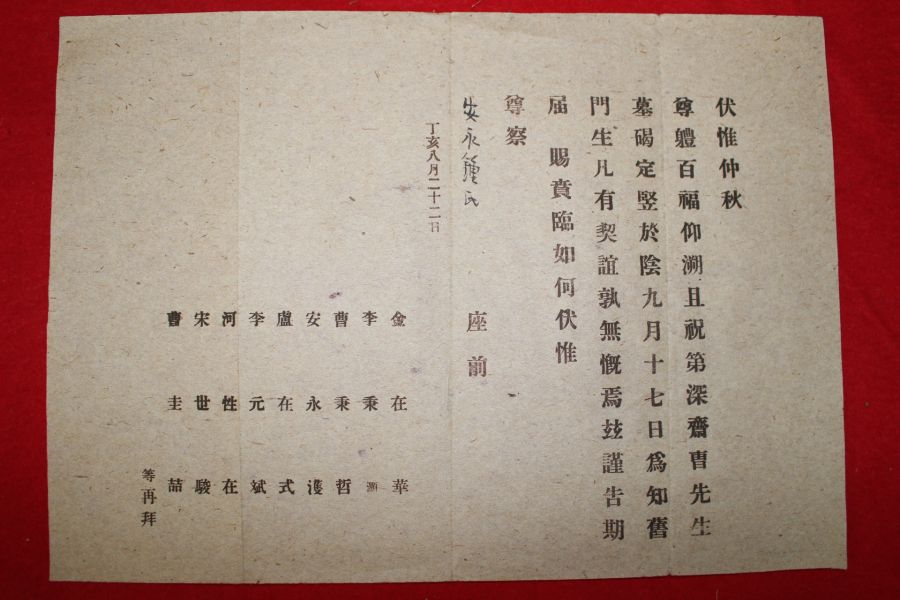 伏惟仲秋
尊軆百福仰溯且祝第深齋曺先生
墓碣定竪於陰九月十七日爲知舊
門生凡有契誼孰無慨焉玆謹告期
届　賜賁臨如何伏惟
尊察
安永鍾氏　座前
丁亥八月二十二日
金在華
李秉
曺秉哲
安永濩
盧在式
李元斌
河性在
宋世駿
曺圭喆
等再拜